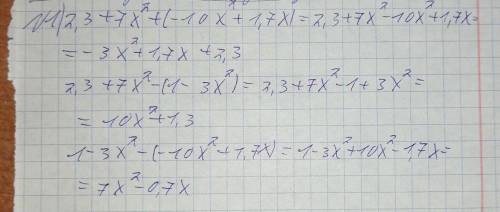 №1) 2,3 + 7x² + (-10x² + 1,7x) = 2,3 + 7x² - 10x² + 1,7x =
= -3x² + 1,7x + 2,3
2,3 + 7x² - (1 - 3x²) = 2,3 + 7x² - 1 + 3x² =
= 10x² + 1,3
1 - 3x² - (-10x² + 1,7x) = 1 - 3x² + 10x² - 1,7x =
= 7x² - 0,7x